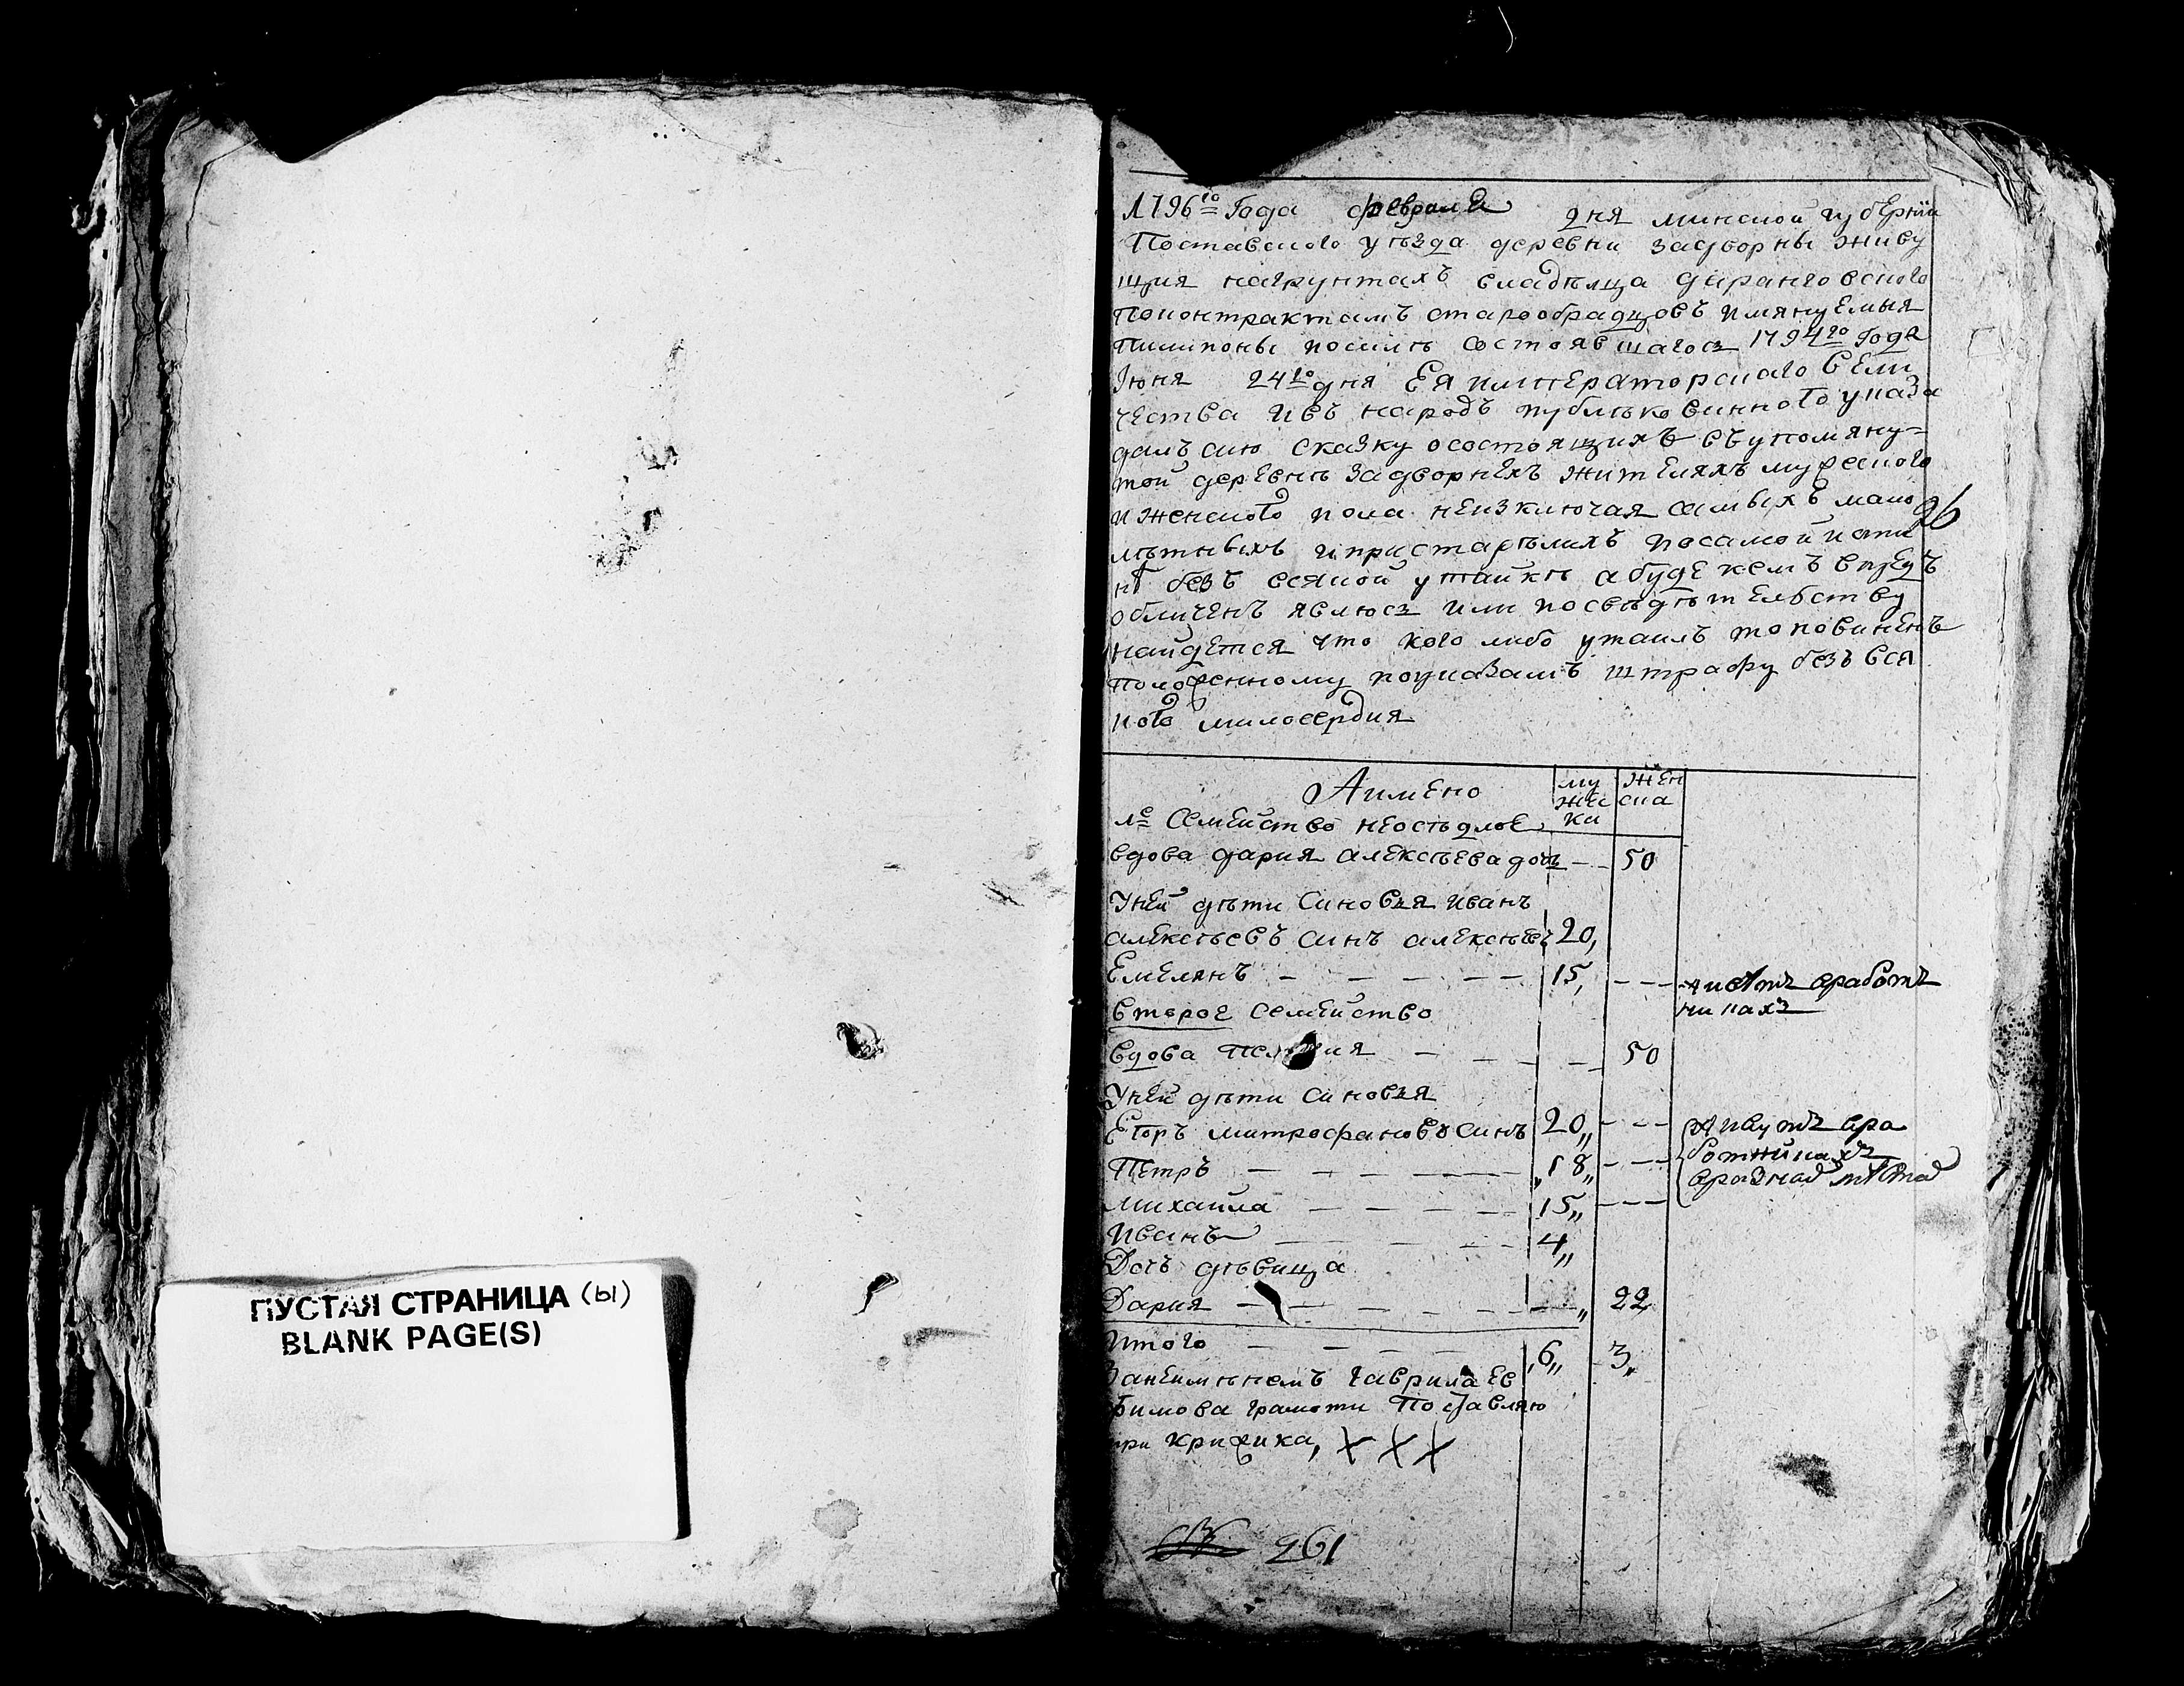 ПУСТАЯ СТРАНИЦА (ы)
BLANK PAGE(S)
1796го Года февраля дня минской губернии
Поставского уѣзда деревни задворны живу
щия нагрунтахъ владѣлца
Поконтрактамъ старообрадцовъ имянуемыя
Пилипоны посилѣ состоявшагося 1794го Года
Июня 24го дня Ея императорского Вели
чества ивъ народъ публѣкованного указа
далъ сию сказку осостоящихъ въупомяну=
той деревнѣ задворнехъ жителяхъ мужеского
и женского пола неизключая самыхъ мало
26
лѣтныхъ ипристарѣлихъ посамой исти
нѣ безъ всякой утайкѣ абуде кемъ впредъ
обличенъ явлюсь или посвѣдѣтельству
найдется что кого либо утаилъ то повиненъ
положенному поуказамъ штрафу безъ вся
кого милосердия
Аимено
му жен
жеска ска
№ Семейство неосѣдлое
вдова дария алексѣева дочь — 50
Уней дѣти синовья иванъ
алексѣевъ синъ алексѣевъ 20,
Емелянъ — — — — — 15, — — — живѣтъ вработ
никахъ
второе семейство
вдова — — — 50
Уней дѣти синовья
Егоръ митрофановъ синъ 20„ — — — живутъ вра
Петръ — — — — „18„ — — — ботникахъ
вразнах мѣстах
михайла — — — — 15„ — — —
Иванъ — — — — 4„
Дочъ дѣвица
Дария — — — — — „ 22
Итого — — — — „6„ 3„
Занеимѣнемъ гаврила Ев
фимова грамоти Поставляю
три крижика, X X X
261